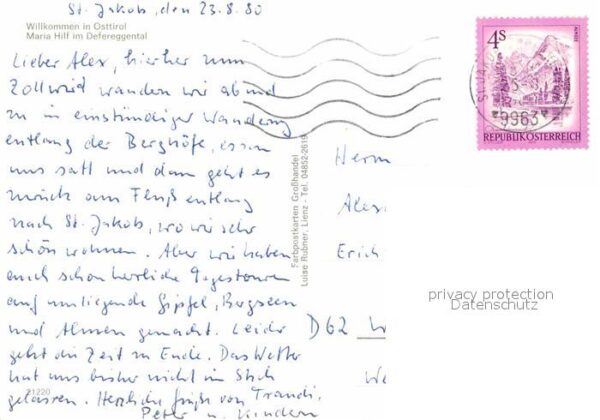 St. Jakob, den 23.8.80
Willkommen in Osttirol
Maria Hilf im Defereggental
Lieber Alex, hierher zum
Zollwirt wandern wir ab und
zu in einstündiger Wanderung
entlang der Berghöfe, essen
uns satt und dann geht es
zurück am Fluß entlang
nach St. Jakob, wo wir sehr
schön wohnen. Aber wir haben
auch schon herrliche Tagestouren
auf umliegende Gipfel, Bergseen
und Almen gemacht. Leider
geht die Zeit zu Ende. Das Wetter
hat uns bisher nicht im Stich
gelassen. Herzliche Grüße von Traudi,
Peter u. Kindern
21220
Farbpostkarten Großhandel
Luise Rubner, Lienz - Tel. 04852-2619
4S
REPUBLIK ÖSTERREICH
9963
Herrn
Alex
Erich
D 62 W
We
privacy protection
Datenschutz